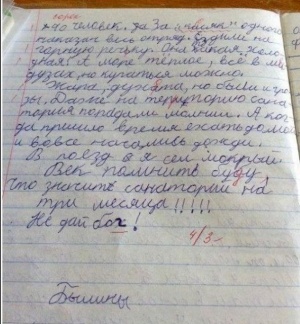 40 человек, да за "косяк" одного
наказан весь отряд. Будили на
гарную речку. Она такая холо
дная! А море тёплое, всё в ме
дузах, но купаться можно.
Жара, духота, но были и гро
зы. Даже на территорию сана
тория попадали молнии. А ког
да пришло время ехать домой
и вовсе начались дожди.
В поезд я сел мокрый.
Век помнить буду,
что значить санаторий на
три месяца!!!!!
Не дай бог!
4/3-
Былины